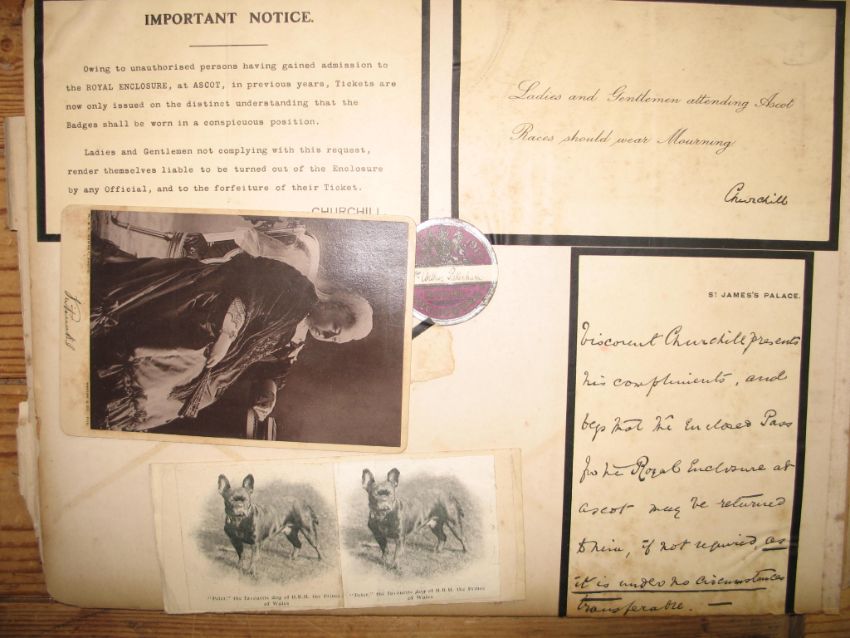 IMPORTANT NOTICE.
Owing to unauthorised persons having gained admission to
the ROYAL ENCLOSURE, at ASCOT, in previous years, Tickets are
now only issued on the distinct understanding that the
Badges shall be worn in a conspicuous position.
Ladies and Gentlemen not complying with this request,
render themselves liable to be turned out of the Enclosure
by any Official, and to the forfeiture of their Ticket.
CHURCHILL.
Ladies and Gentlemen attending Ascot
Races should wear Mourning
Churchill
ST JAMES'S PALACE.
Viscount Churchill presents
his compliments, and
begs that the Enclosed Pass
for the Royal Enclosure at
Ascot may be returned
to him, if not required, as
it is under no circumstances
transferable. —
"Peter," the favourite dog of H.R.H. the Prince
of Wales
"Peter," the favourite dog of H.R.H. the Prince
of Wales